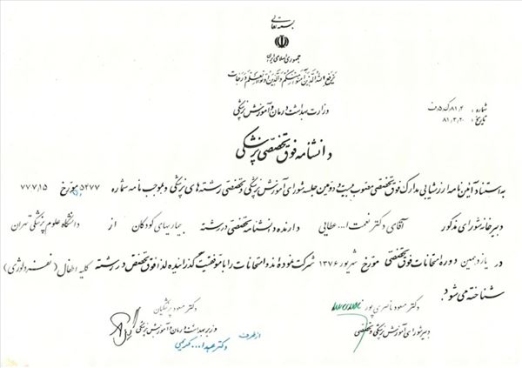 بسمه تعالی
جمهوری اسلامی ایران
یرفع الله الذین آمنوا منکم والذین اوتوا العلم درجات
وزارت بهداشت، درمان و آموزش پزشکی
شماره:
تاریخ: ۸۱,۳,۲۰
دانشنامه فوق تخصصی پزشکی
به استناد آئین نامه ارزشیابی مدارک فوق تخصصی مصوب بیست و دومین جلسه شورای آموزش پزشکی و تخصصی رشته های پزشکی و بموجب نامه شماره ۵۲۷۷ مورخ ۷۷,۷,۱۵
دبیرخانه شورای مذکور آقای دکتر نعمت ا... عطایی دارنده دانشنامه تخصصی در رشته بیماریهای کودکان از دانشگاه علوم پزشکی تهران
در یازدهمین دوره امتحانات فوق تخصصی مورخ شهریور ۱۳۷۶ شرکت نموده و امتحانات را با موفقیت گذرانیده لذا فوق تخصص در رشته کلیه اطفال (نفرولوژی)
شناخته می شود.
دکتر مسعود ناصری پور
دبیر شورای آموزش پزشکی و تخصصی
دکتر مسعود پزشکیان
وزیر بهداشت، درمان و آموزش پزشکی
از طرف